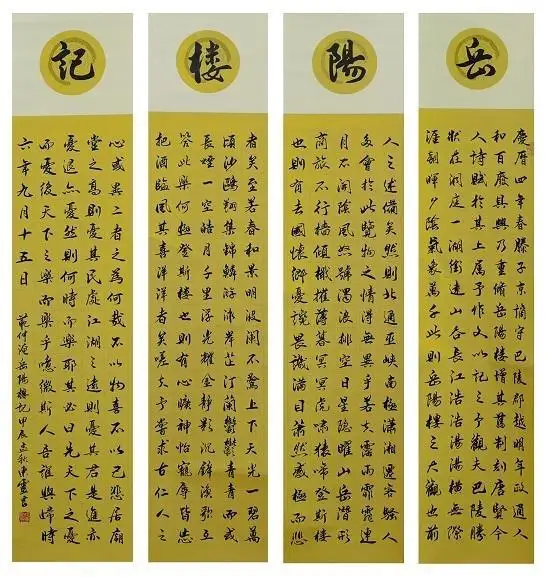 岳
慶曆四年春滕子京謫守巴陵郡越明年政通人
和百廢具興乃重脩岳陽樓增其舊制刻唐賢今
人詩賦於其上屬予作文以記之予觀夫巴陵勝
狀在洞庭一湖銜遠山吞長江浩浩湯湯橫無際
涯朝暉夕陰氣象萬千此則岳陽樓之大觀也前
陽
人之述備矣然則北通巫峽南極瀟湘遷客騷人
多會於此覽物之情得無異乎若夫霪雨霏霏連
月不開陰風怒號濁浪排空日星隱曜山岳潛形
商旅不行檣傾楫摧薄暮冥冥虎嘯猿啼登斯樓
也則有去國懷鄉憂讒畏譏滿目蕭然感極而悲
楼
者矣至若春和景明波瀾不驚上下天光一碧萬
頃沙鷗翔集錦鱗游泳岸芷汀蘭鬱鬱青青而或
長煙一空皓月千里浮光耀金靜影沉璧漁歌互
答此樂何極登斯樓也則有心曠神怡寵辱皆忘
把酒臨風其喜洋洋者矣嗟夫予嘗求古仁人之
記
心或異二者之為何哉不以物喜不以己悲居廟
堂之高則憂其民處江湖之遠則憂其君是進亦
憂退亦憂然則何時而樂耶其必曰先天下之憂
而憂後天下之樂而樂乎噫微斯人吾誰與歸時
六年九月十五日
範仲淹岳陽樓記甲辰孟秋書